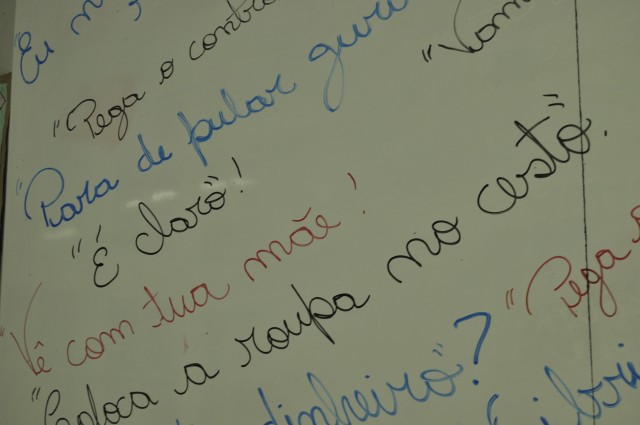 "Eu
"Pega o
"Vam
"Para de pular guri
"É claro"!
"Vê com tua mãe!
"Coloca a roupa no cesto".
"Pega o
dinheiro"?